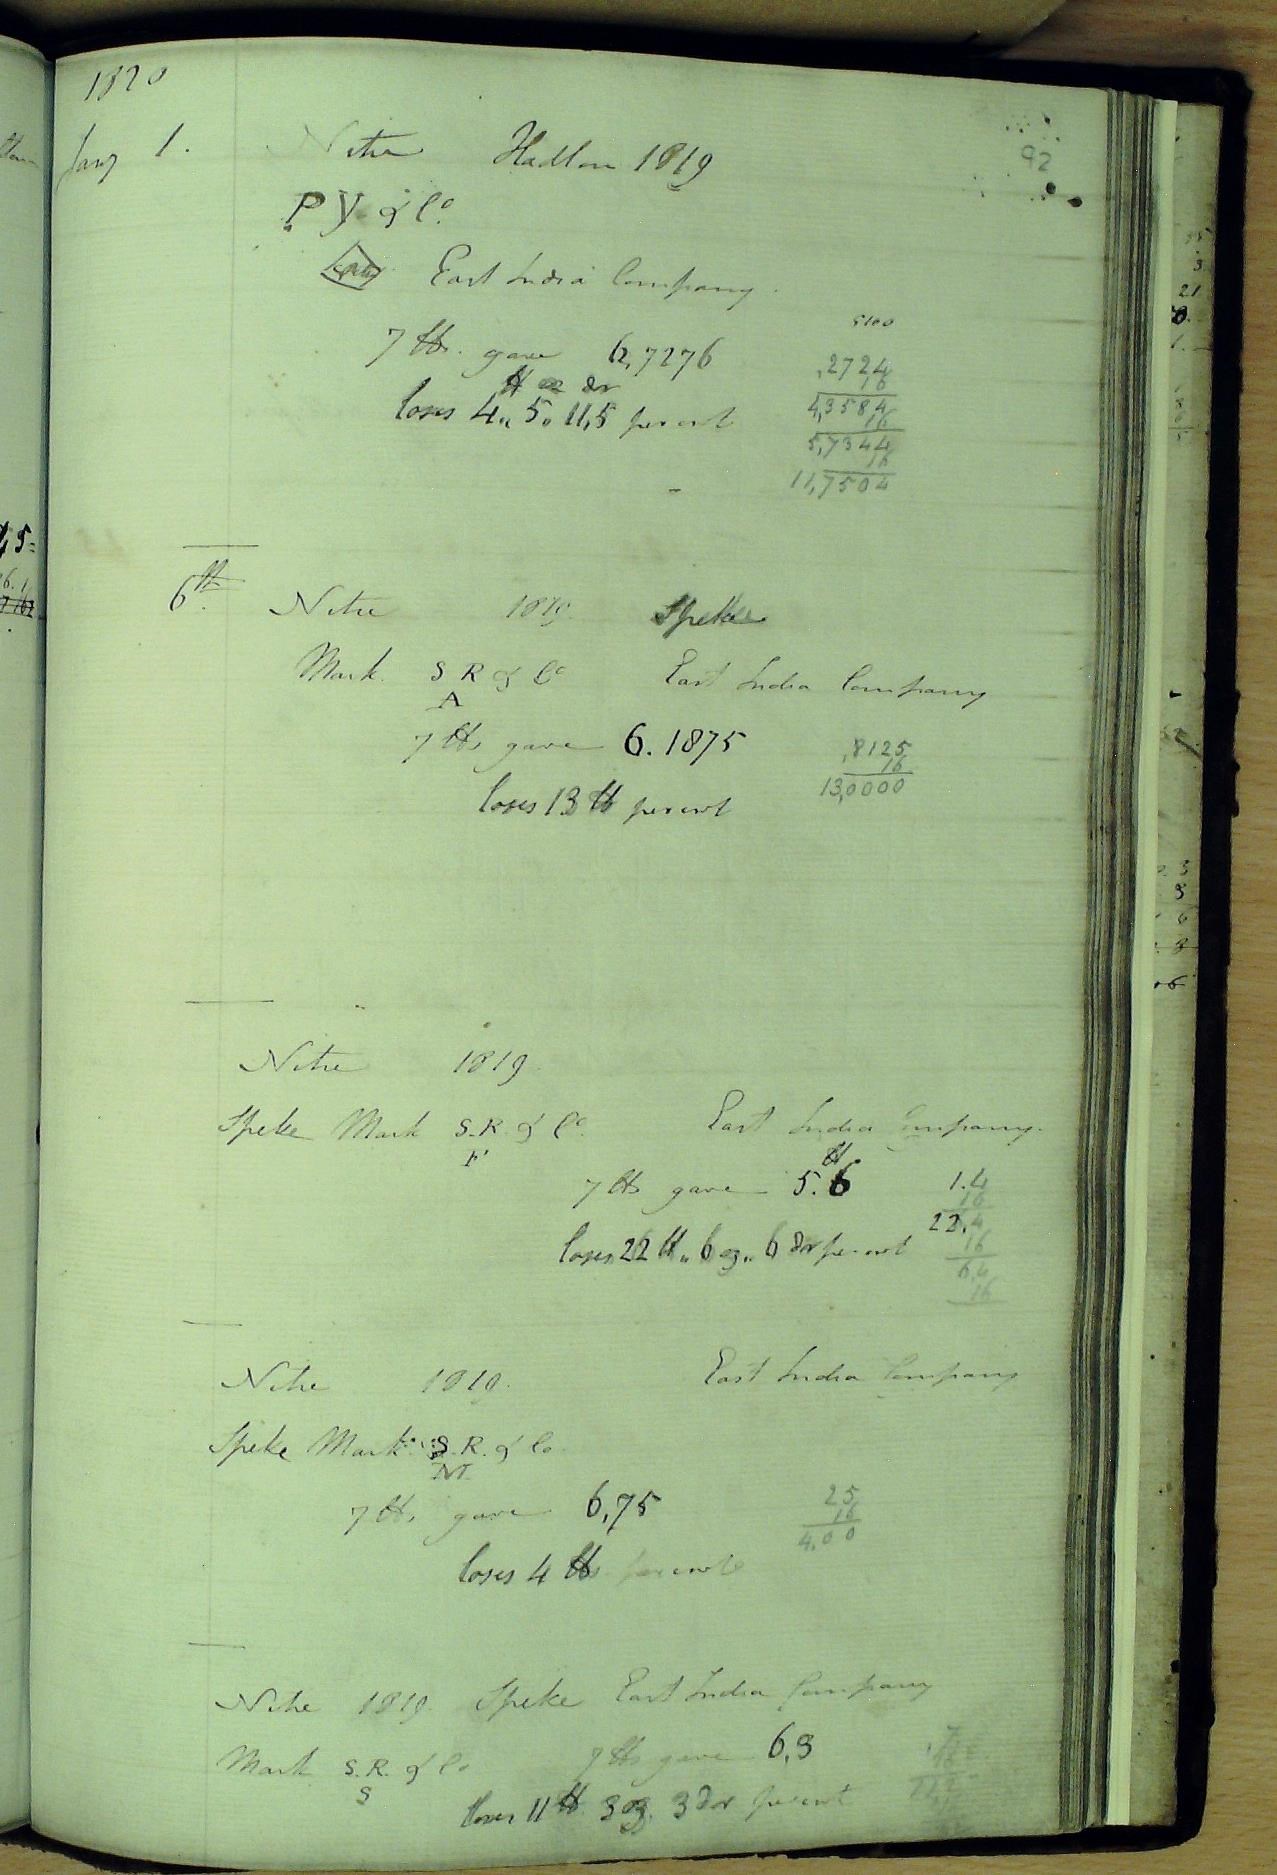 1820
Jany 1. Nitre Hadlow 1819
92
P Y & Co.
East India Company.
7 lbs. gave 6,7276
lb oz dr
loses 4,, 5,, 11,5 per cwt
5100
,2724
16
4,3584
16
5,7344
16
11,7504
6th. Nitre 1819. Speke
Mark. S R & Co East India Company
A
7 lbs gave 6.1875
loses 13 lb per cwt
,8125
16
13,0000
Nitre 1819
Speke Mark S.R. & Co. East India Company.
F
lb
7 lbs gave 5.6
loses 22 lb,, 6 oz,, 6 dr per cwt
1.4
16
22.4
16
6.4
16
Nitre 1819. East India Company
Speke Mark S.R. & Co.
7 lbs, gave 6,75
loses 4 lbs per cwt
25
16
4,00
Nitre 1819. Speke East India Company
Mark S.R. & Co 7 lbs gave 6,3
S
loses 11 lb 3 oz. 3 dr per cwt